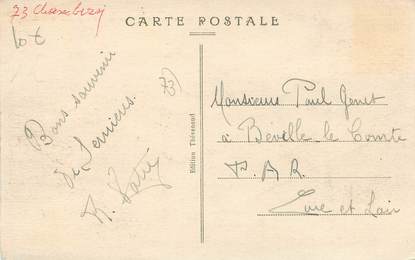 73 Chambéry
10 €
CARTE POSTALE
Bons souvenirs
de Serrières.
73
Edition Thévenand
Monsieur Paul Genet
à Béville le Comte
P. A. R.
Eure et Loir